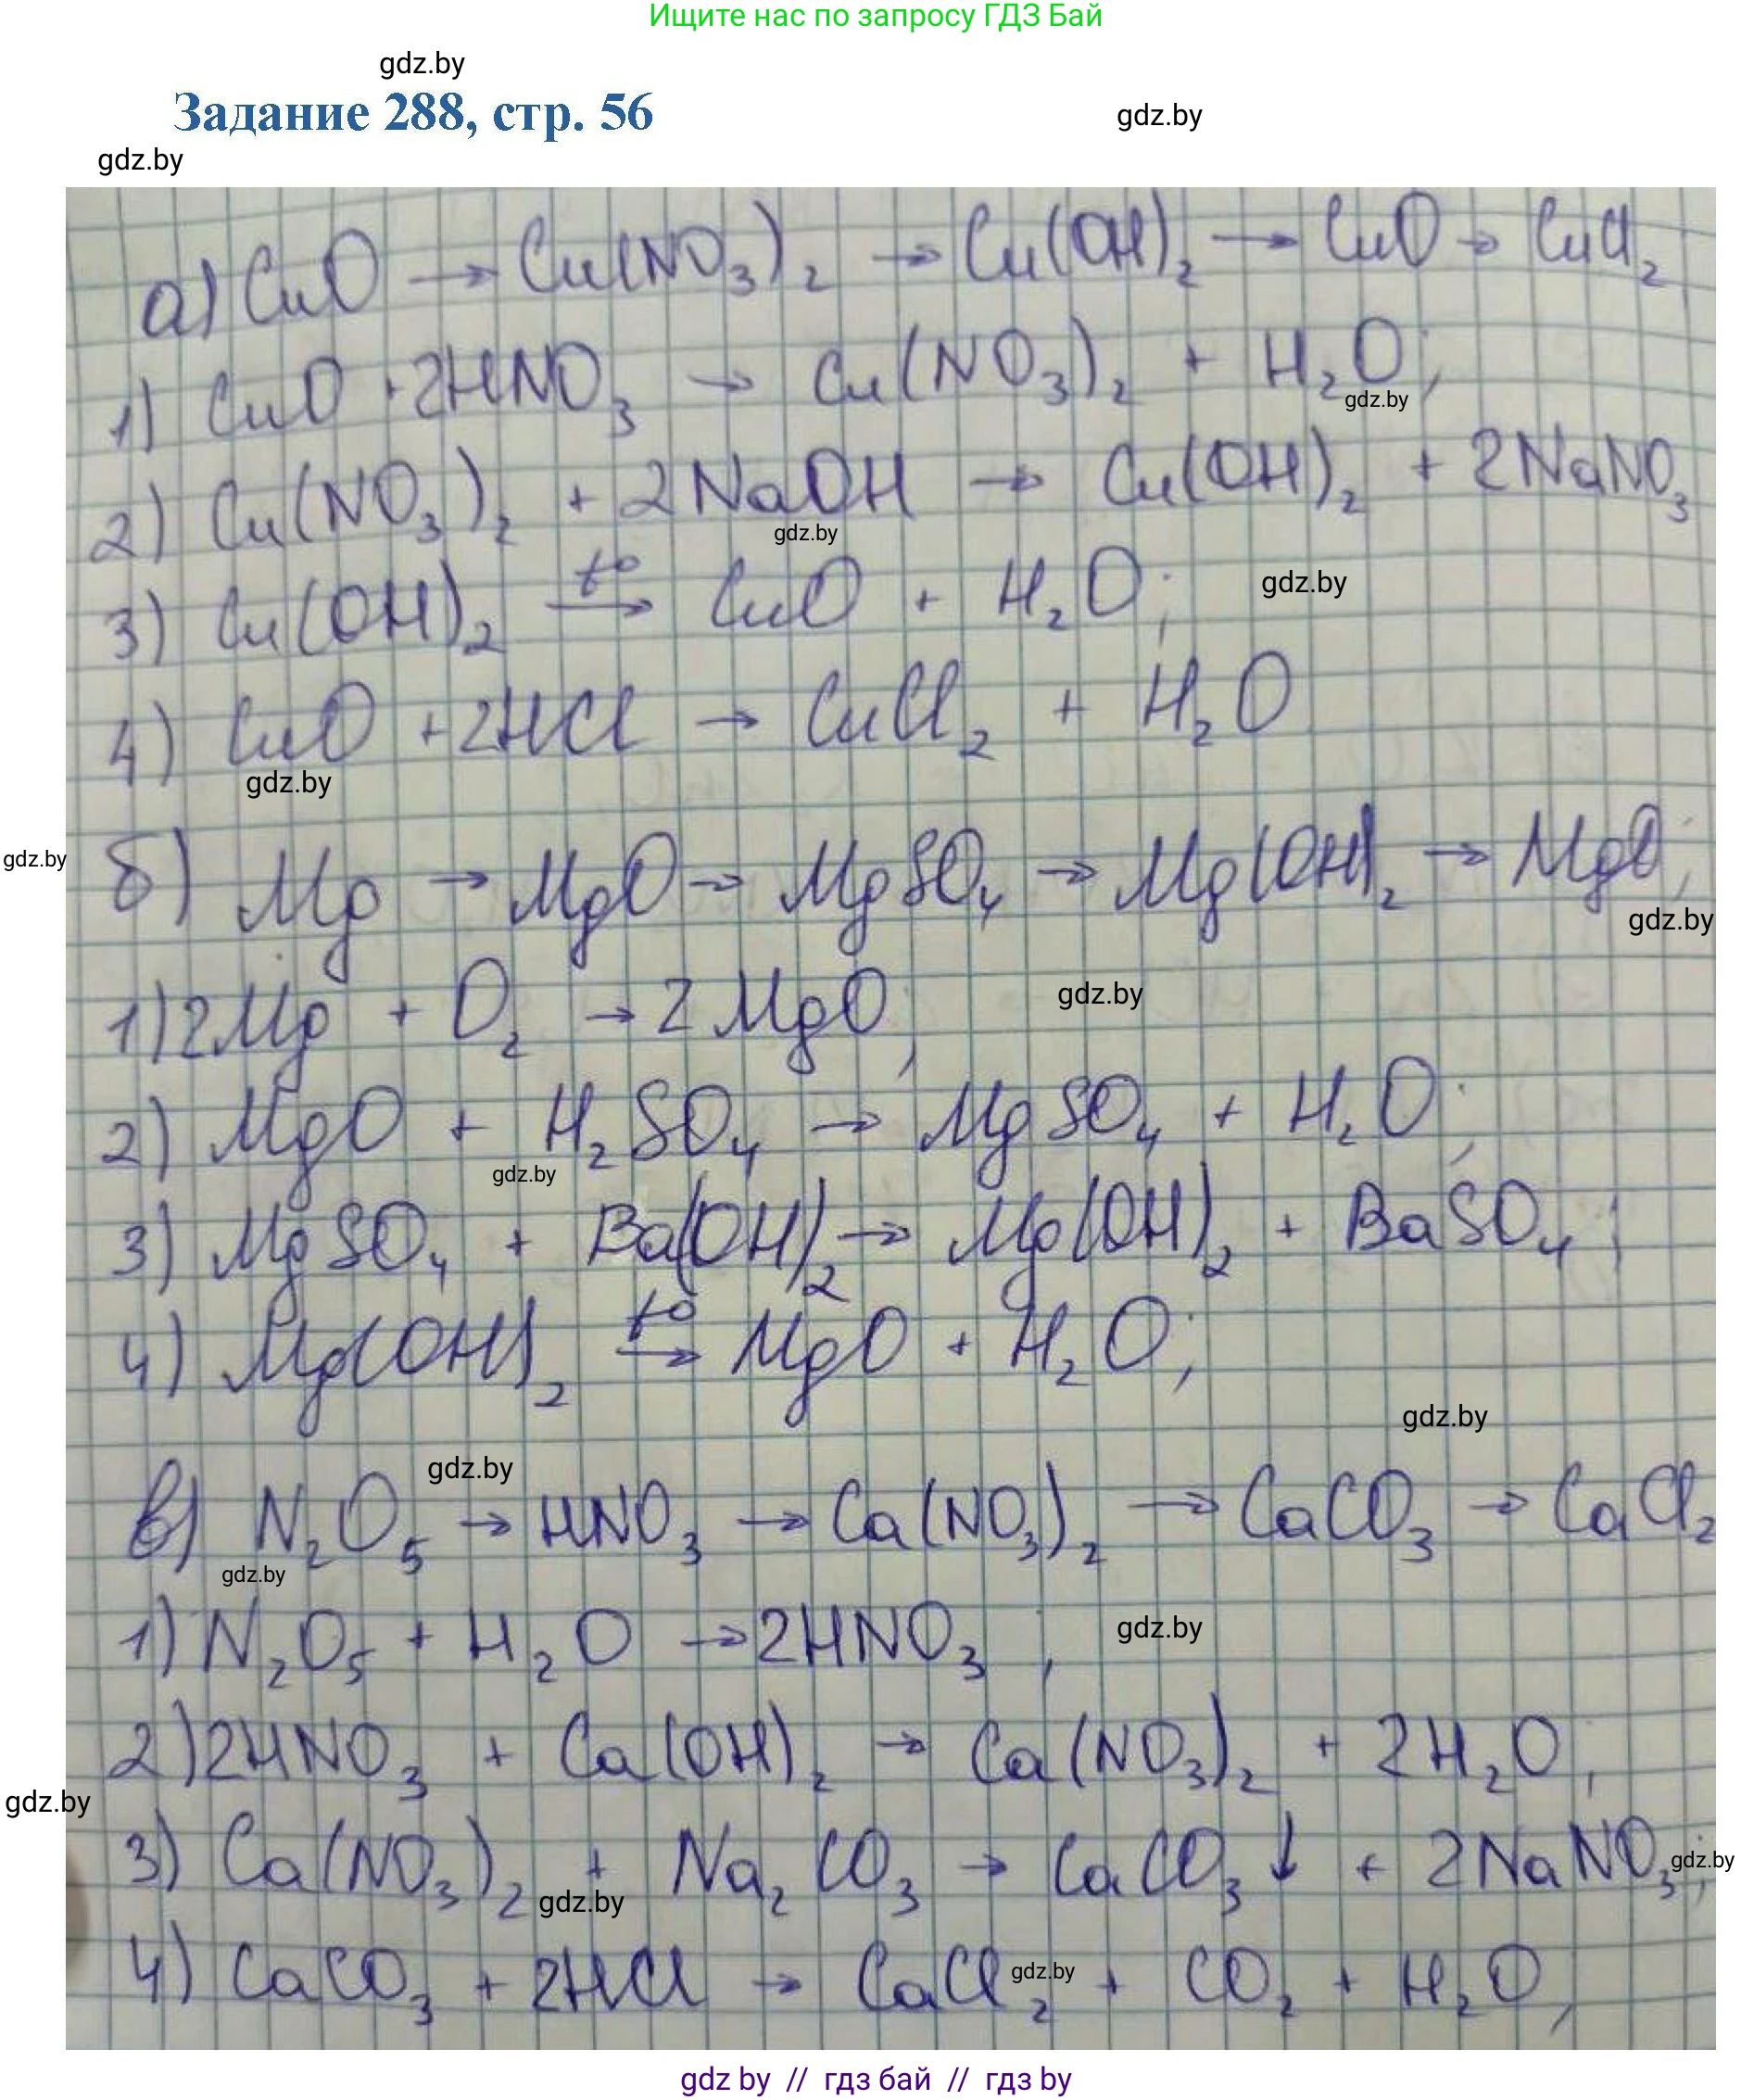 Ищите нас по запросу ГДЗ Бай
gdz.by
Задание 288, стр. 56
gdz.by
gdz.by
а) CuO → Cu(NO₃)₂ → Cu(OH)₂ → CuO → CuCl₂
1) CuO + 2HNO₃ → Cu(NO₃)₂ + H₂O;
gdz.by
2) Cu(NO₃)₂ + 2NaOH → Cu(OH)₂ + 2NaNO₃
gdz.by
3) Cu(OH)₂ t° → CuO + H₂O;
gdz.by
4) CuO + 2HCl → CuCl₂ + H₂O
gdz.by
gdz.by
б) Mg → MgO → MgSO₄ → Mg(OH)₂ → MgO;
gdz.by
1) 2Mg + O₂ → 2MgO;
gdz.by
2) MgO + H₂SO₄ → MgSO₄ + H₂O;
gdz.by
3) MgSO₄ + Ba(OH)₂ → Mg(OH)₂ + BaSO₄;
4) Mg(OH)₂ t° → MgO + H₂O;
gdz.by
gdz.by
в) N₂O₅ → HNO₃ → Ca(NO₃)₂ → CaCO₃ → CaCl₂
gdz.by
1) N₂O₅ + H₂O → 2HNO₃;
gdz.by
2) 2HNO₃ + Ca(OH)₂ → Ca(NO₃)₂ + 2H₂O;
gdz.by
3) Ca(NO₃)₂ + Na₂CO₃ → CaCO₃↓ + 2NaNO₃;
gdz.by
gdz.by
4) CaCO₃ + 2HCl → CaCl₂ + CO₂ + H₂O;
gdz.by
gdz by // гдз бай // gdz by